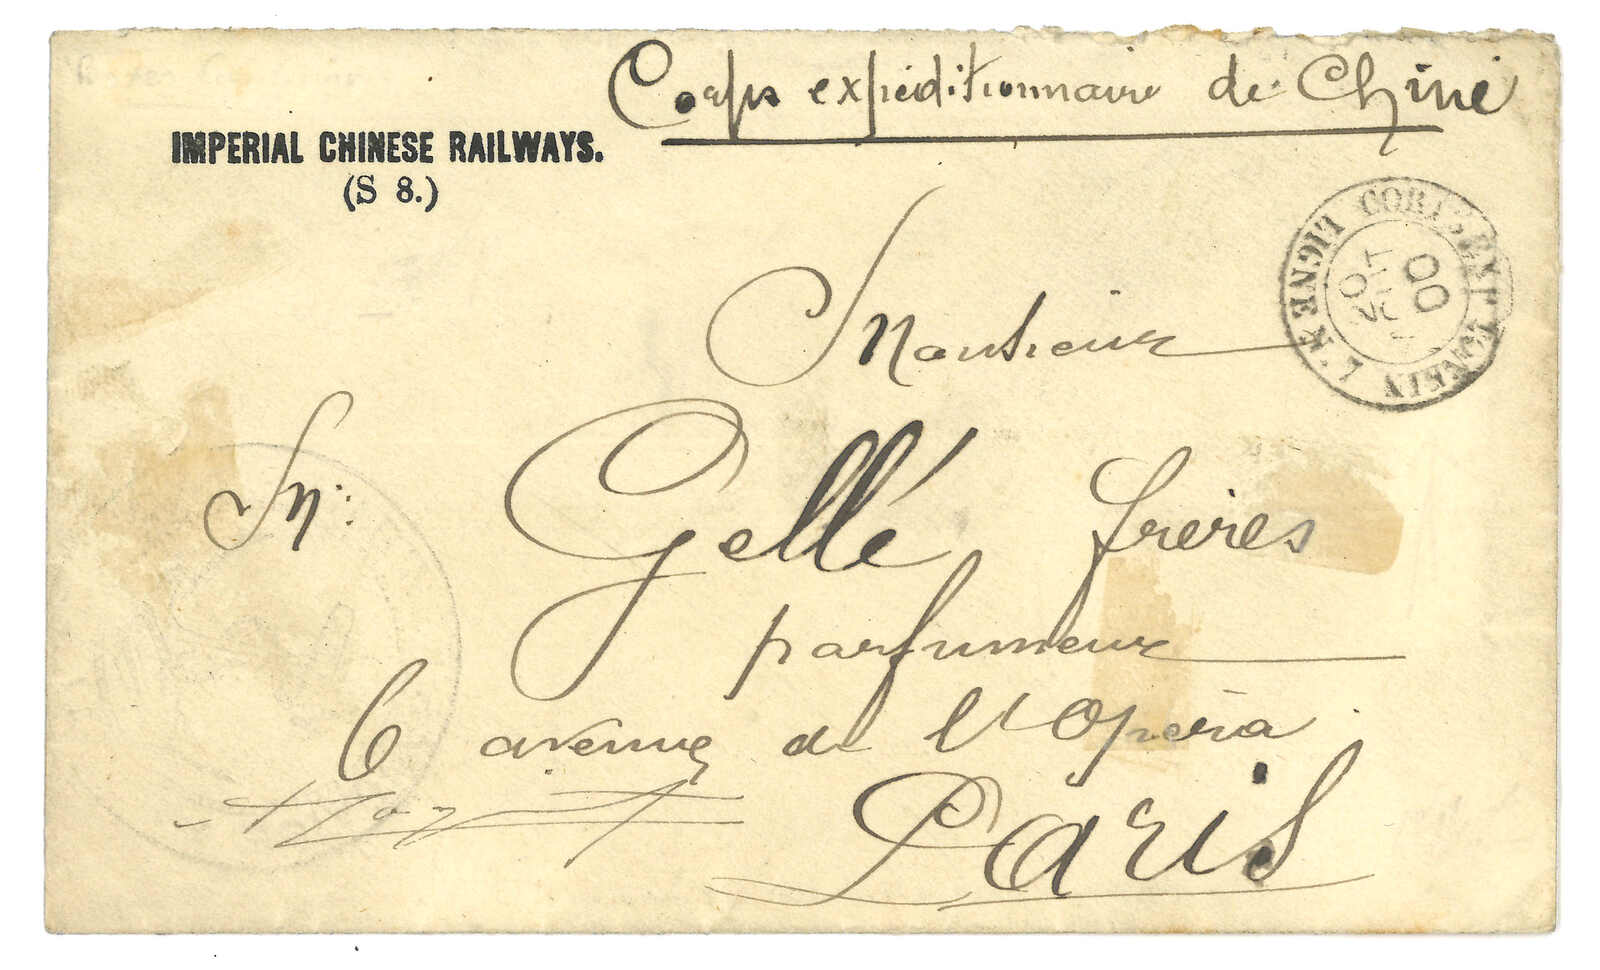 Corps expéditionnaire de Chine
IMPERIAL CHINESE RAILWAYS.
(S 8.)
LIGNE N
00
Monsieur
M:
Gellé frères
parfumeur
6 avenue de l'Opéra
Paris